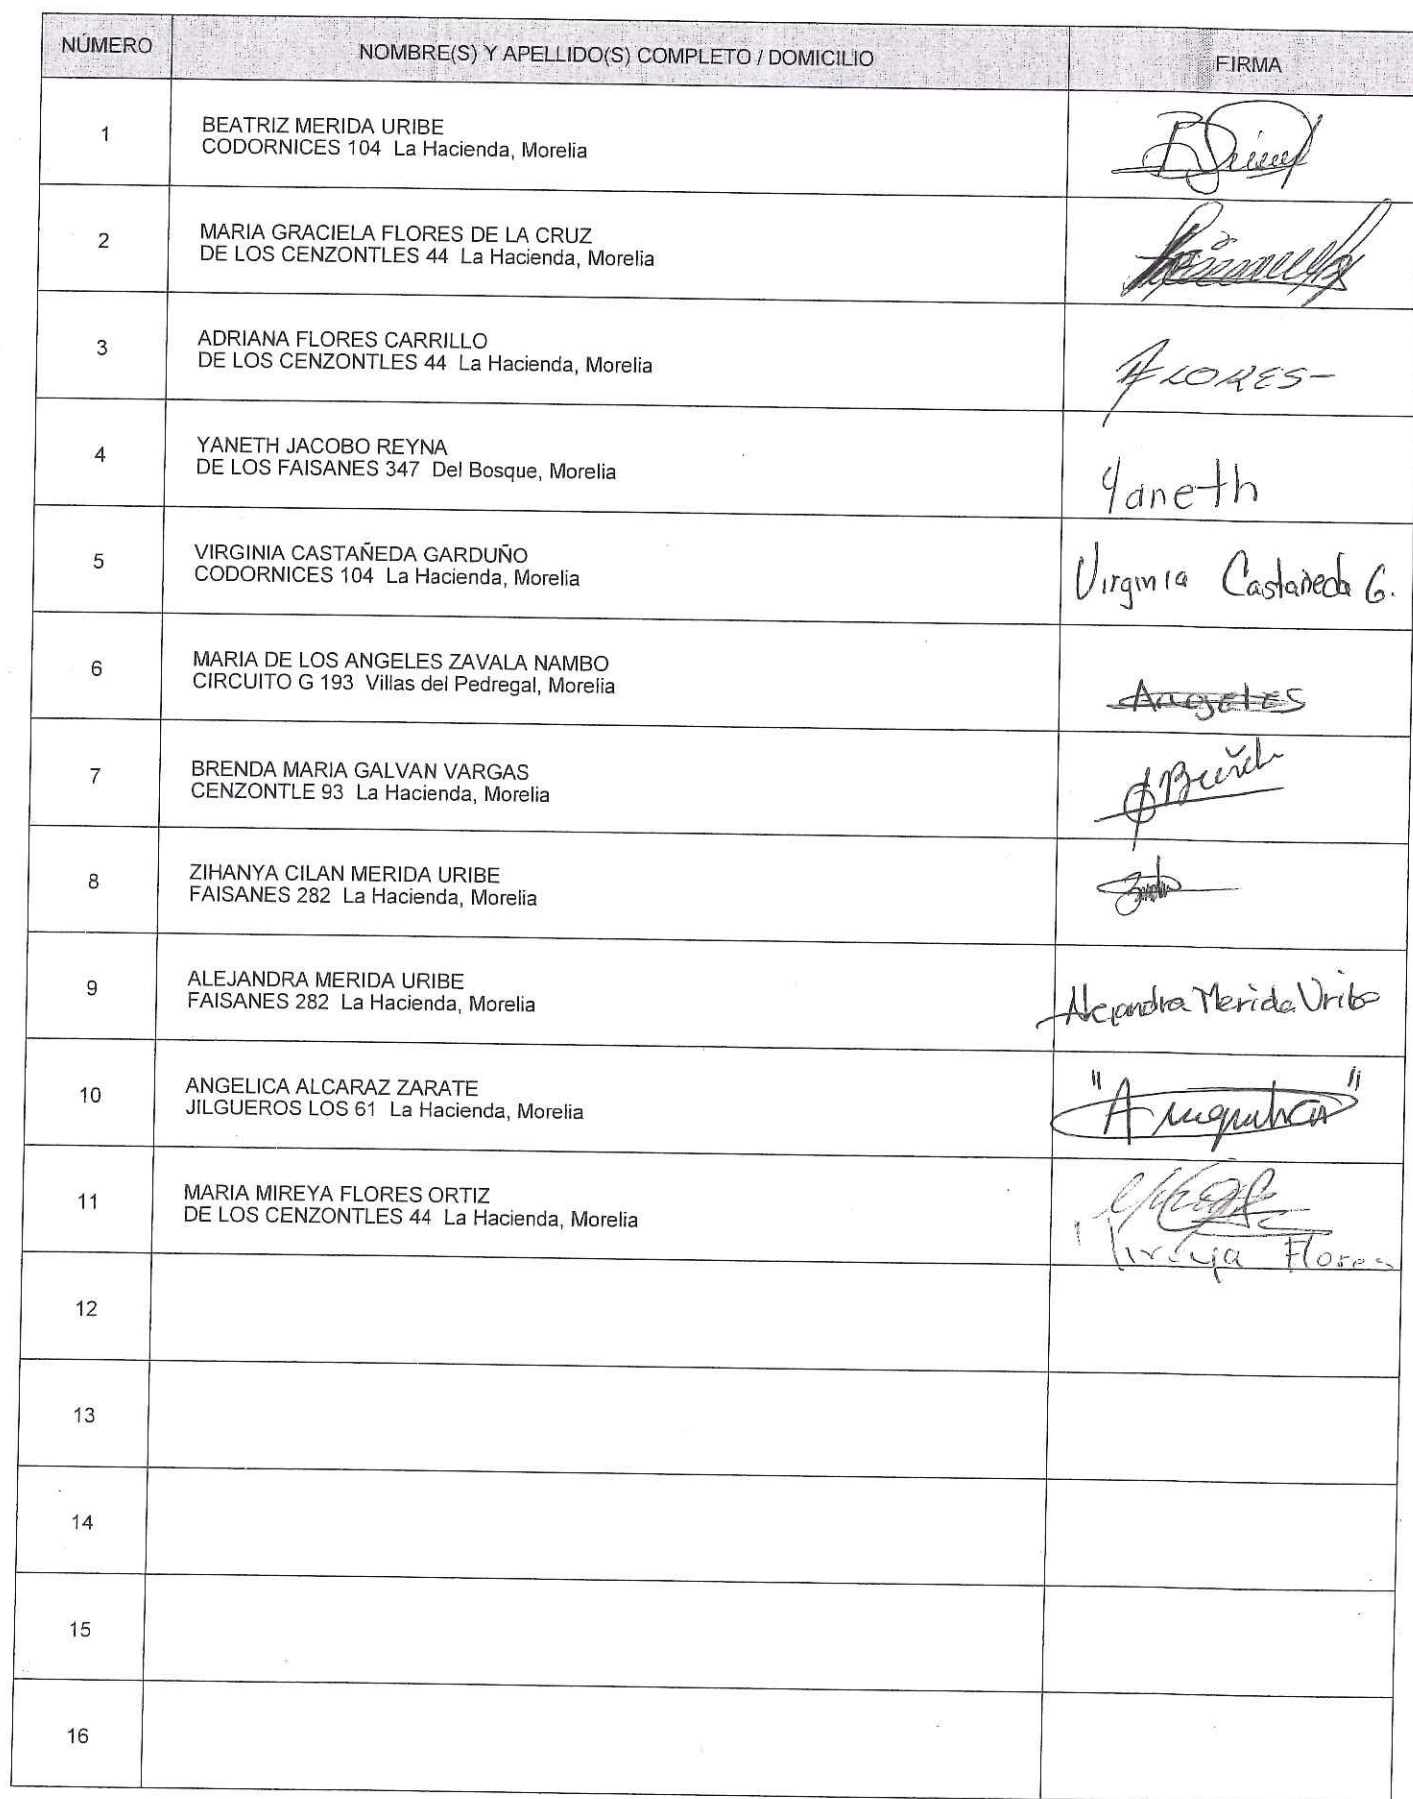 NÚMERO NOMBRE(S) Y APELLIDO(S) COMPLETO / DOMICILIO FIRMA
1 BEATRIZ MERIDA URIBE
CODORNICES 104 La Hacienda, Morelia
2 MARIA GRACIELA FLORES DE LA CRUZ
DE LOS CENZONTLES 44 La Hacienda, Morelia
3 ADRIANA FLORES CARRILLO
DE LOS CENZONTLES 44 La Hacienda, Morelia
FLORES-
4 YANETH JACOBO REYNA
DE LOS FAISANES 347 Del Bosque, Morelia
Yaneth
5 VIRGINIA CASTAÑEDA GARDUÑO
CODORNICES 104 La Hacienda, Morelia
Virginia Castañeda G.
6 MARIA DE LOS ANGELES ZAVALA NAMBO
CIRCUITO G 193 Villas del Pedregal, Morelia
Angeles
7 BRENDA MARIA GALVAN VARGAS
CENZONTLE 93 La Hacienda, Morelia
8 ZIHANYA CILAN MERIDA URIBE
FAISANES 282 La Hacienda, Morelia
9 ALEJANDRA MERIDA URIBE
FAISANES 282 La Hacienda, Morelia
Alejandra Merida Uribe
10 ANGELICA ALCARAZ ZARATE
JILGUEROS LOS 61 La Hacienda, Morelia
11 MARIA MIREYA FLORES ORTIZ
DE LOS CENZONTLES 44 La Hacienda, Morelia
Mireya Flores
12
13
14
15
16